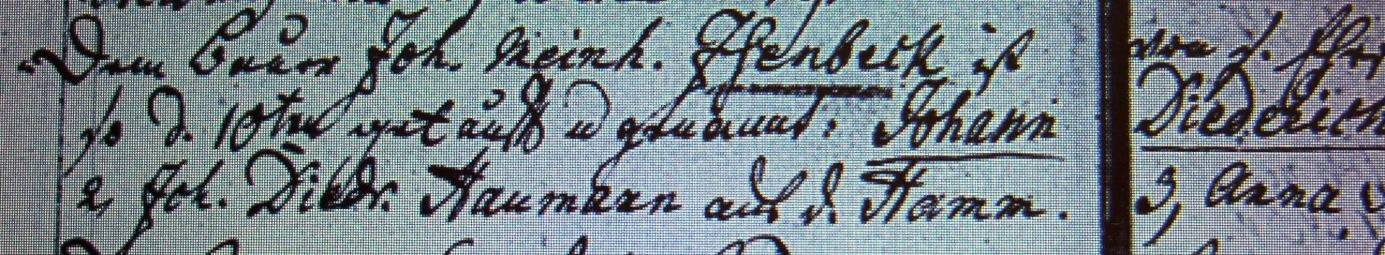 Dem Bauer Joh. Meinh. Isenbeck ist
so d. 10ten getauft u genannt: Johann
2, Joh. Diedr. Naumann auf d. Hamm.
von d.
Diederich
3, Anna